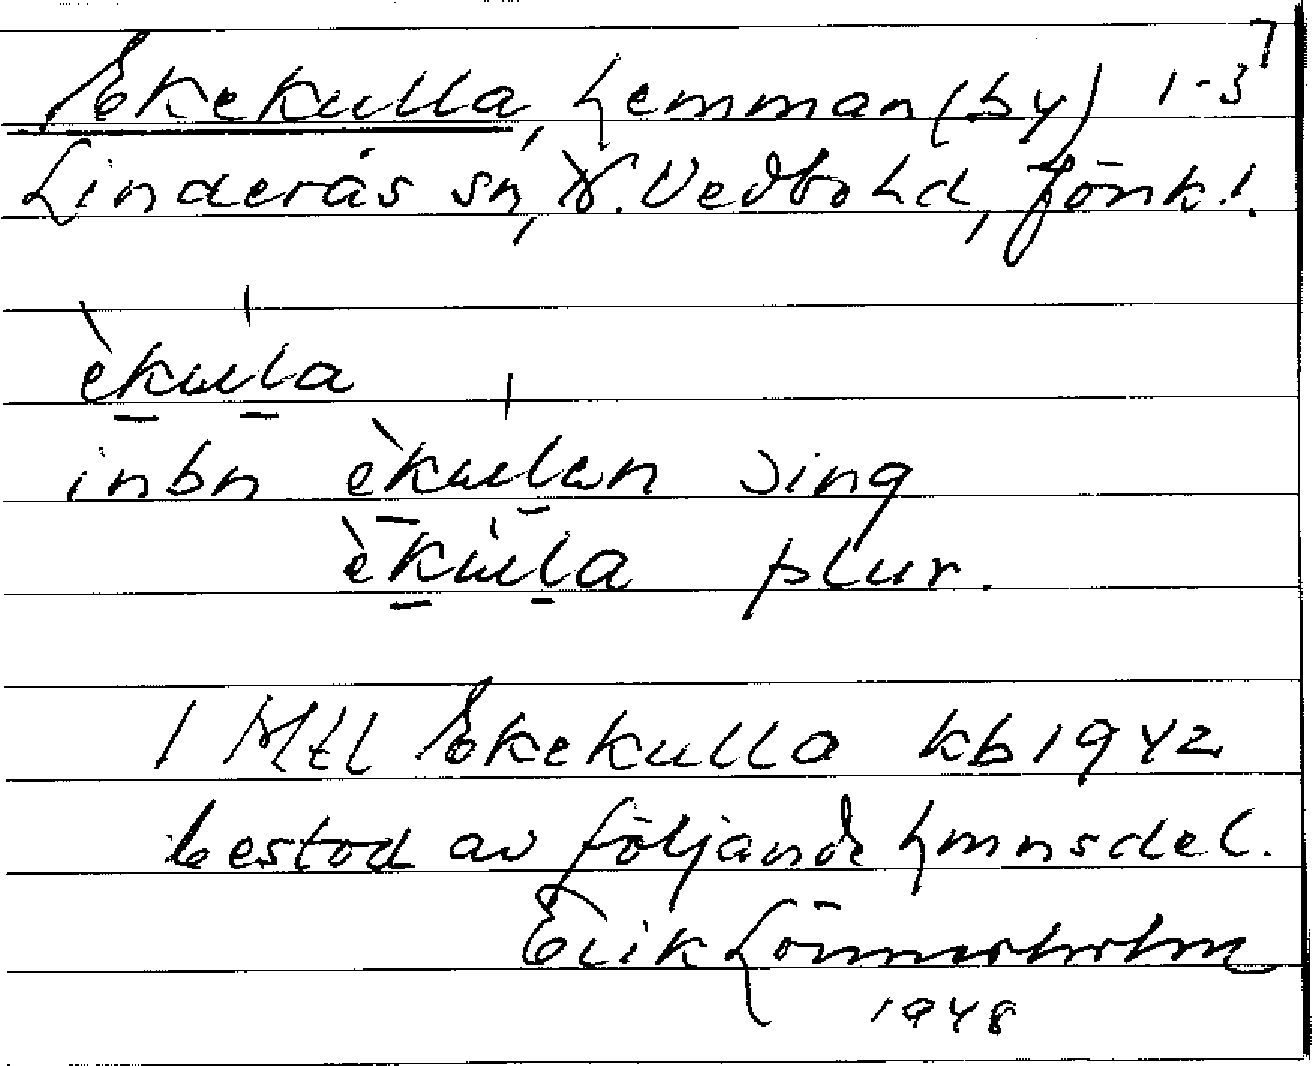 Ekekulla, hemman (by) 1-3 7
Linderås sn, N. Vedbo hd, Jönk. l.
èkulla
inbn èkullan sing
èkulla plur.
I Mtl Ekekulla kb 1942
bestod av följande hmnsdel.
Erik Lönnerholm
1948